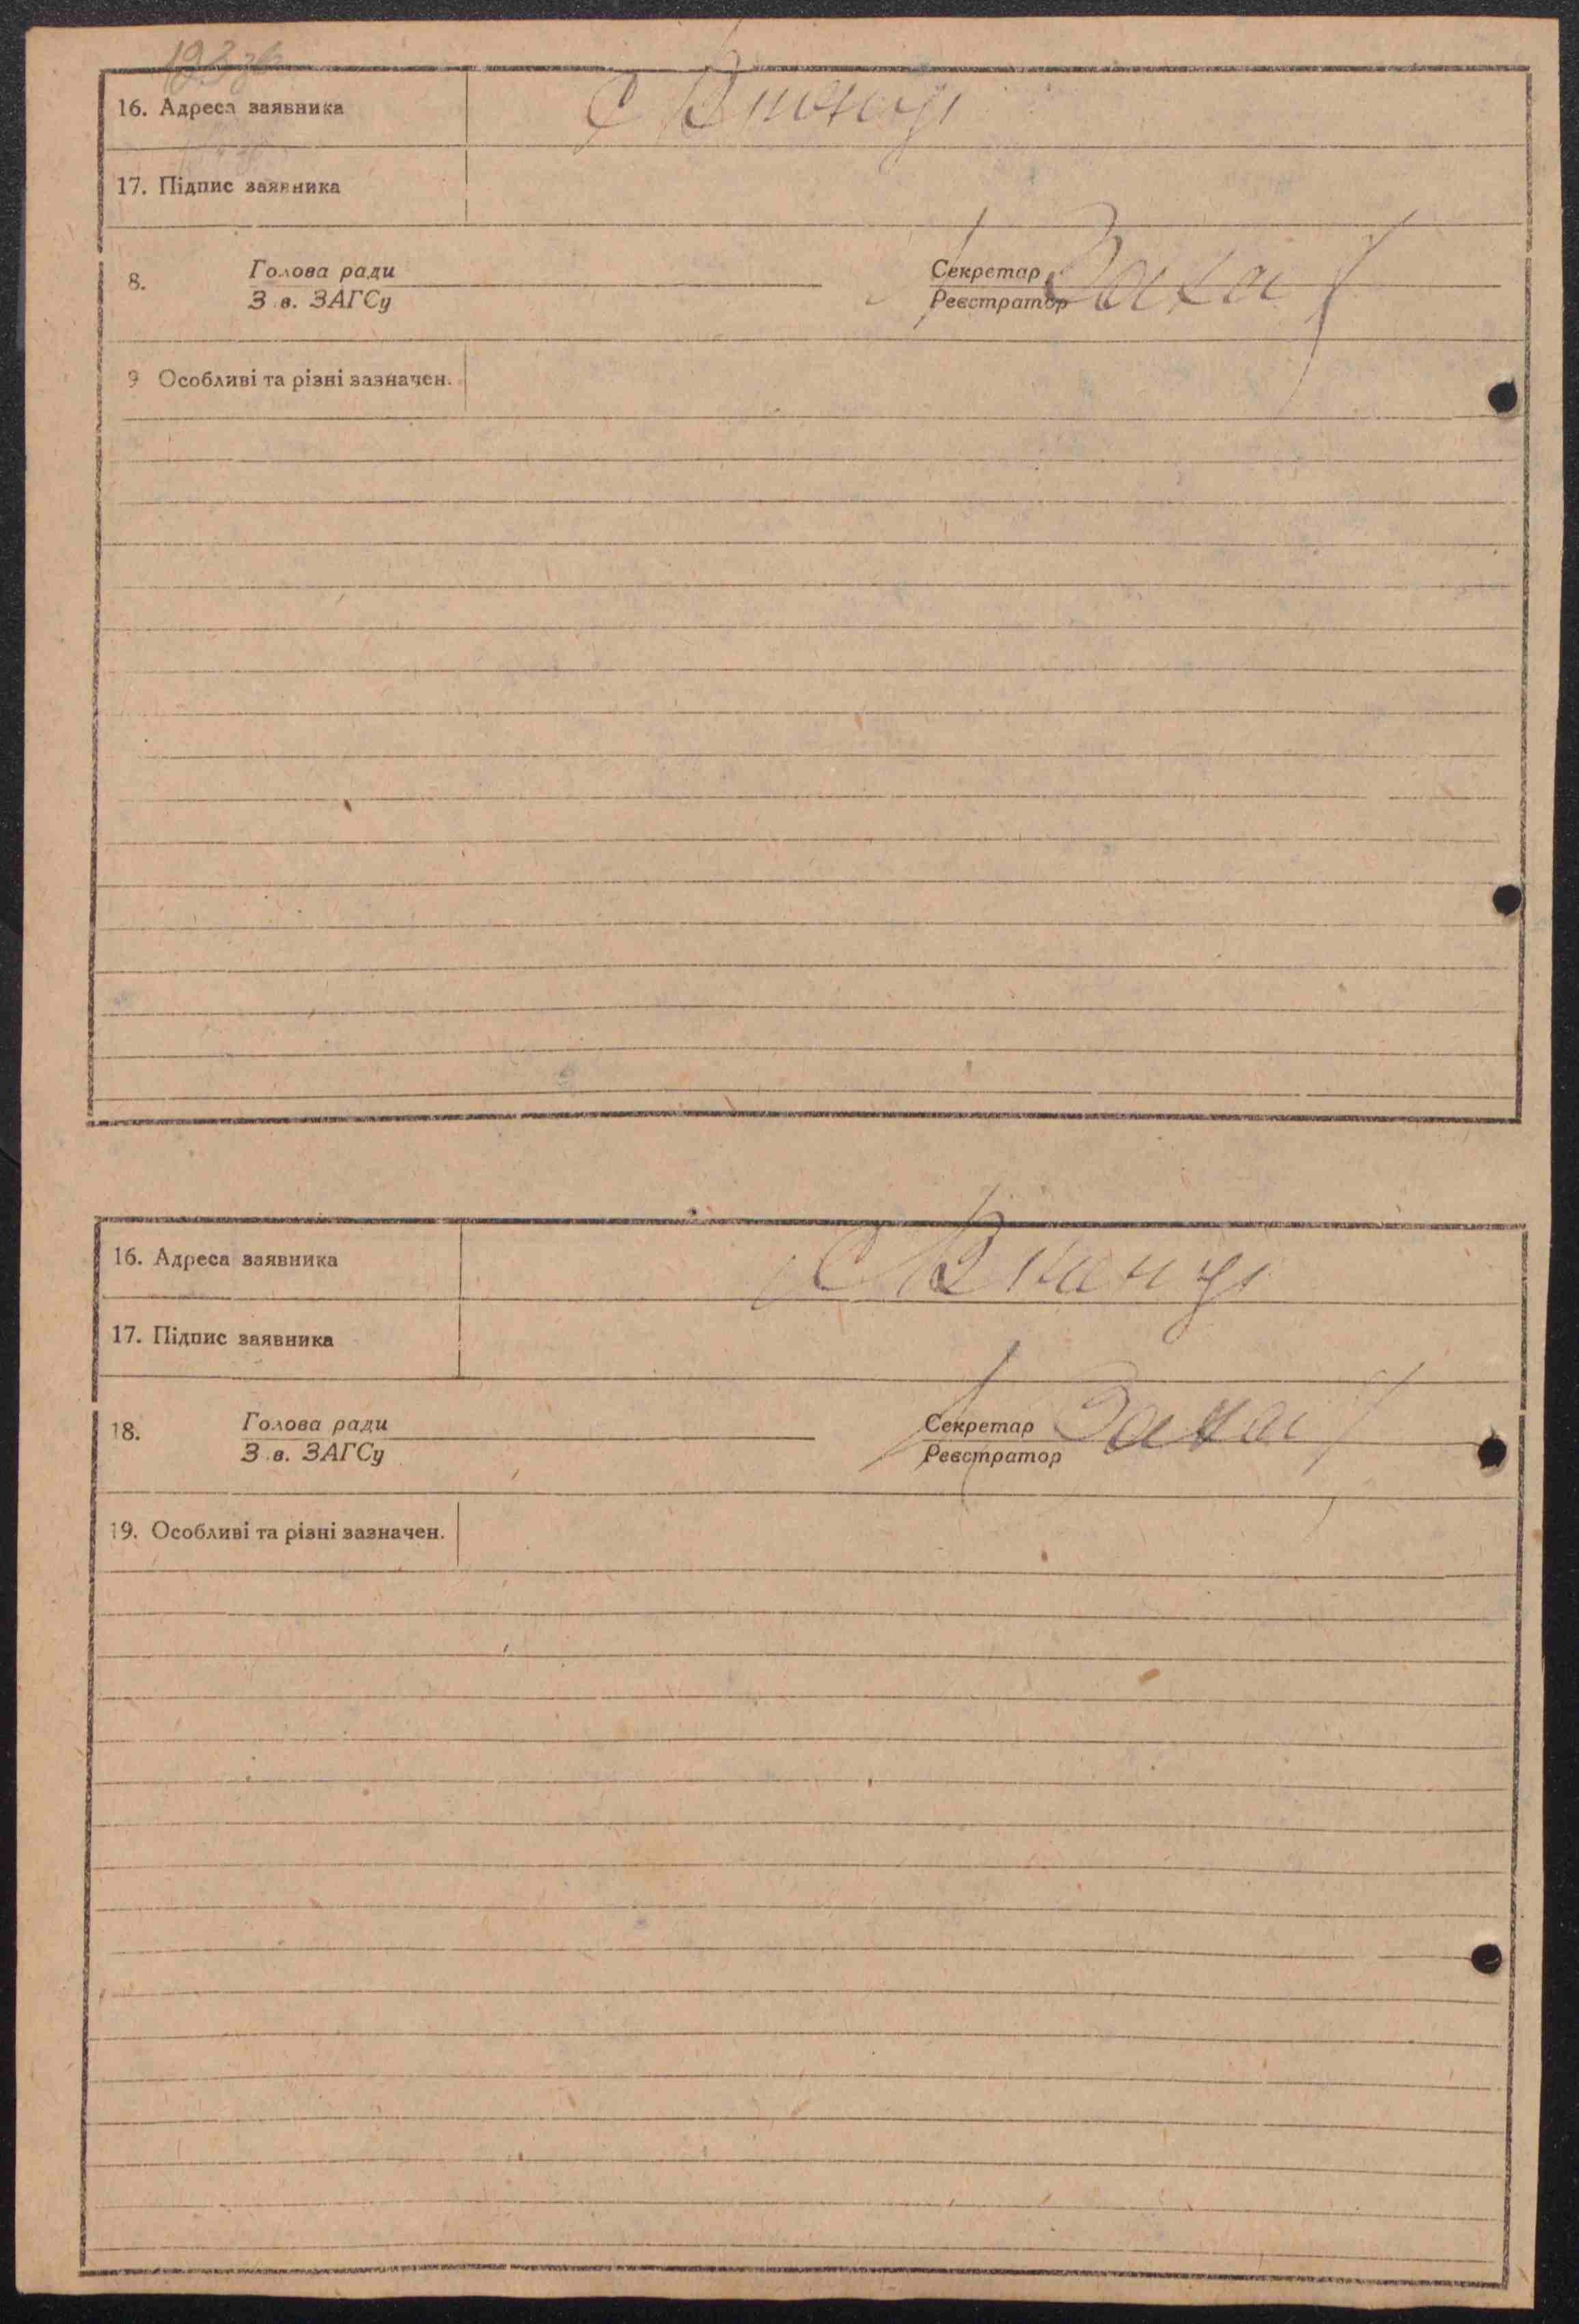 16. Адреса заявника
17. Підпис заявника
8. Голова ради Секретар
З.в. ЗАГСу Реєстратор
9 Особливі та різні зазначен.
16. Адреса заявника
17. Підпис заявника
18. Голова ради Секретар
З.в. ЗАГСу Реєстратор
19. Особливі та різні зазначен.